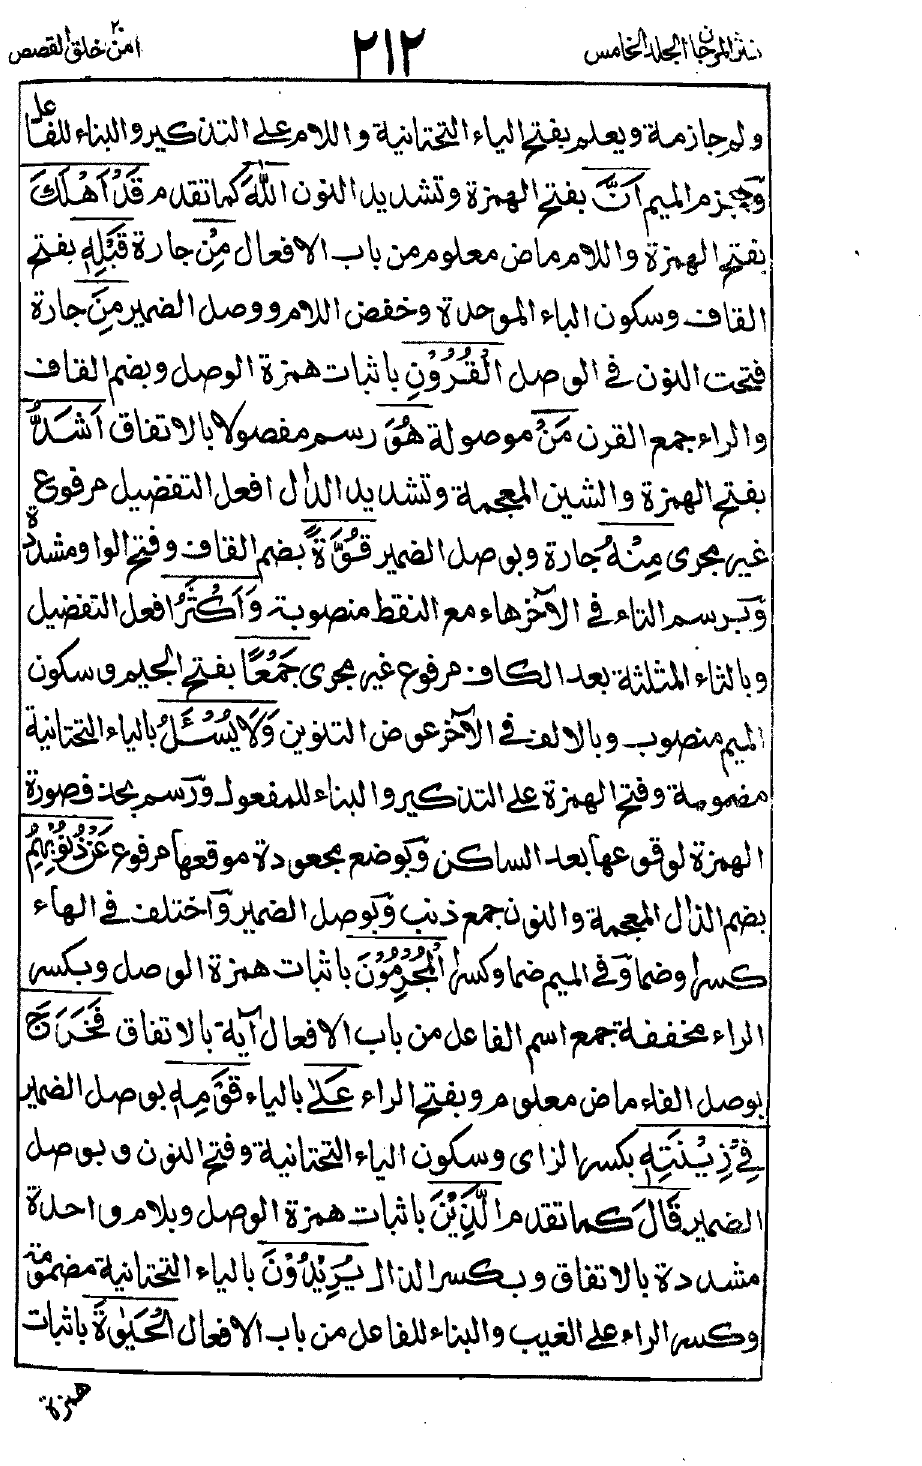 نثر المرجان المجلد الخامس
٢١٢
امن خلق ٢٠ القصص
ولم جازمة ويعلم بفتح الياء التحتانية واللام على التذكير والبناء للفاعل
وبجزم الميم اَنَّ بفتح الهمزة وتشديد النون اللّٰهَ كما تقدم قَدْ اَهْلَكَ
بفتح الهمزة واللام ماض معلوم من باب الافعال مِنْ جارة قَبْلِهٖ بفتح
القاف وسكون الباء الموحدة وخفض اللام ووصل الضمير مِنَ جارة
فتحت النون فى الوصل الْقُرُوْنِ باثبات همزة الوصل وبضم القاف
والراء جمع القرن مَنْ موصولة هُوَ رسم مفصولا بالاتفاق اَشَدُّ
بفتح الهمزة والشين المعجمة وتشديد الدال افعل التفضيل مرفوع
غير مجرى مِنْهُ جارة وبوصل الضمير قُوَّةً بضم القاف وفتح الواو مشددة
وبرسم التاء فى الآخر هاء مع النقط منصوبة وَاَكْثَرُ افعل التفضيل
وبالثاء المثلثة بعد الكاف مرفوع غير مجرى جَمْعًا بفتح الجيم وسكون
الميم منصوب وبالالف فى الآخر عوض التنوين وَلَا يُسْـَٔلُ بالياء التحتانية
مضمومة وفتح الهمزة على التذكير والبناء للمفعول ورسم بحذف صورة
الهمزة لوقوعها بعد الساكن وبوضع مجعودة موقعها مرفوع عَنْ ذُنُوْبِهِمُ
بضم الذال المعجمة والنون جمع ذنب وبوصل الضمير واختلف فى الهاء
كسرا وضما وفى الميم ضما وكسرا الْمُجْرِمُوْنَ باثبات همزة الوصل وبكسر
الراء مخففة جمع اسم الفاعل من باب الافعال آية بالاتفاق فَخَرَجَ
بوصل الفاء ماض معلوم وبفتح الراء عَلٰى بالياء قَوْمِهٖ بوصل الضمير
فِىْ زِيْنَتِهٖ بكسر الزاى وسكون الياء التحتانية وفتح النون وبوصل
الضمير قَالَ كما تقدم الَّذِيْنَ باثبات همزة الوصل وبلام واحدة
مشددة بالاتفاق وبكسر الذال يُرِيْدُوْنَ بالياء التحتانية مضمومة
وكسر الراء على الغيب والبناء للفاعل من باب الافعال الْحَيٰوةَ باثبات
همزة